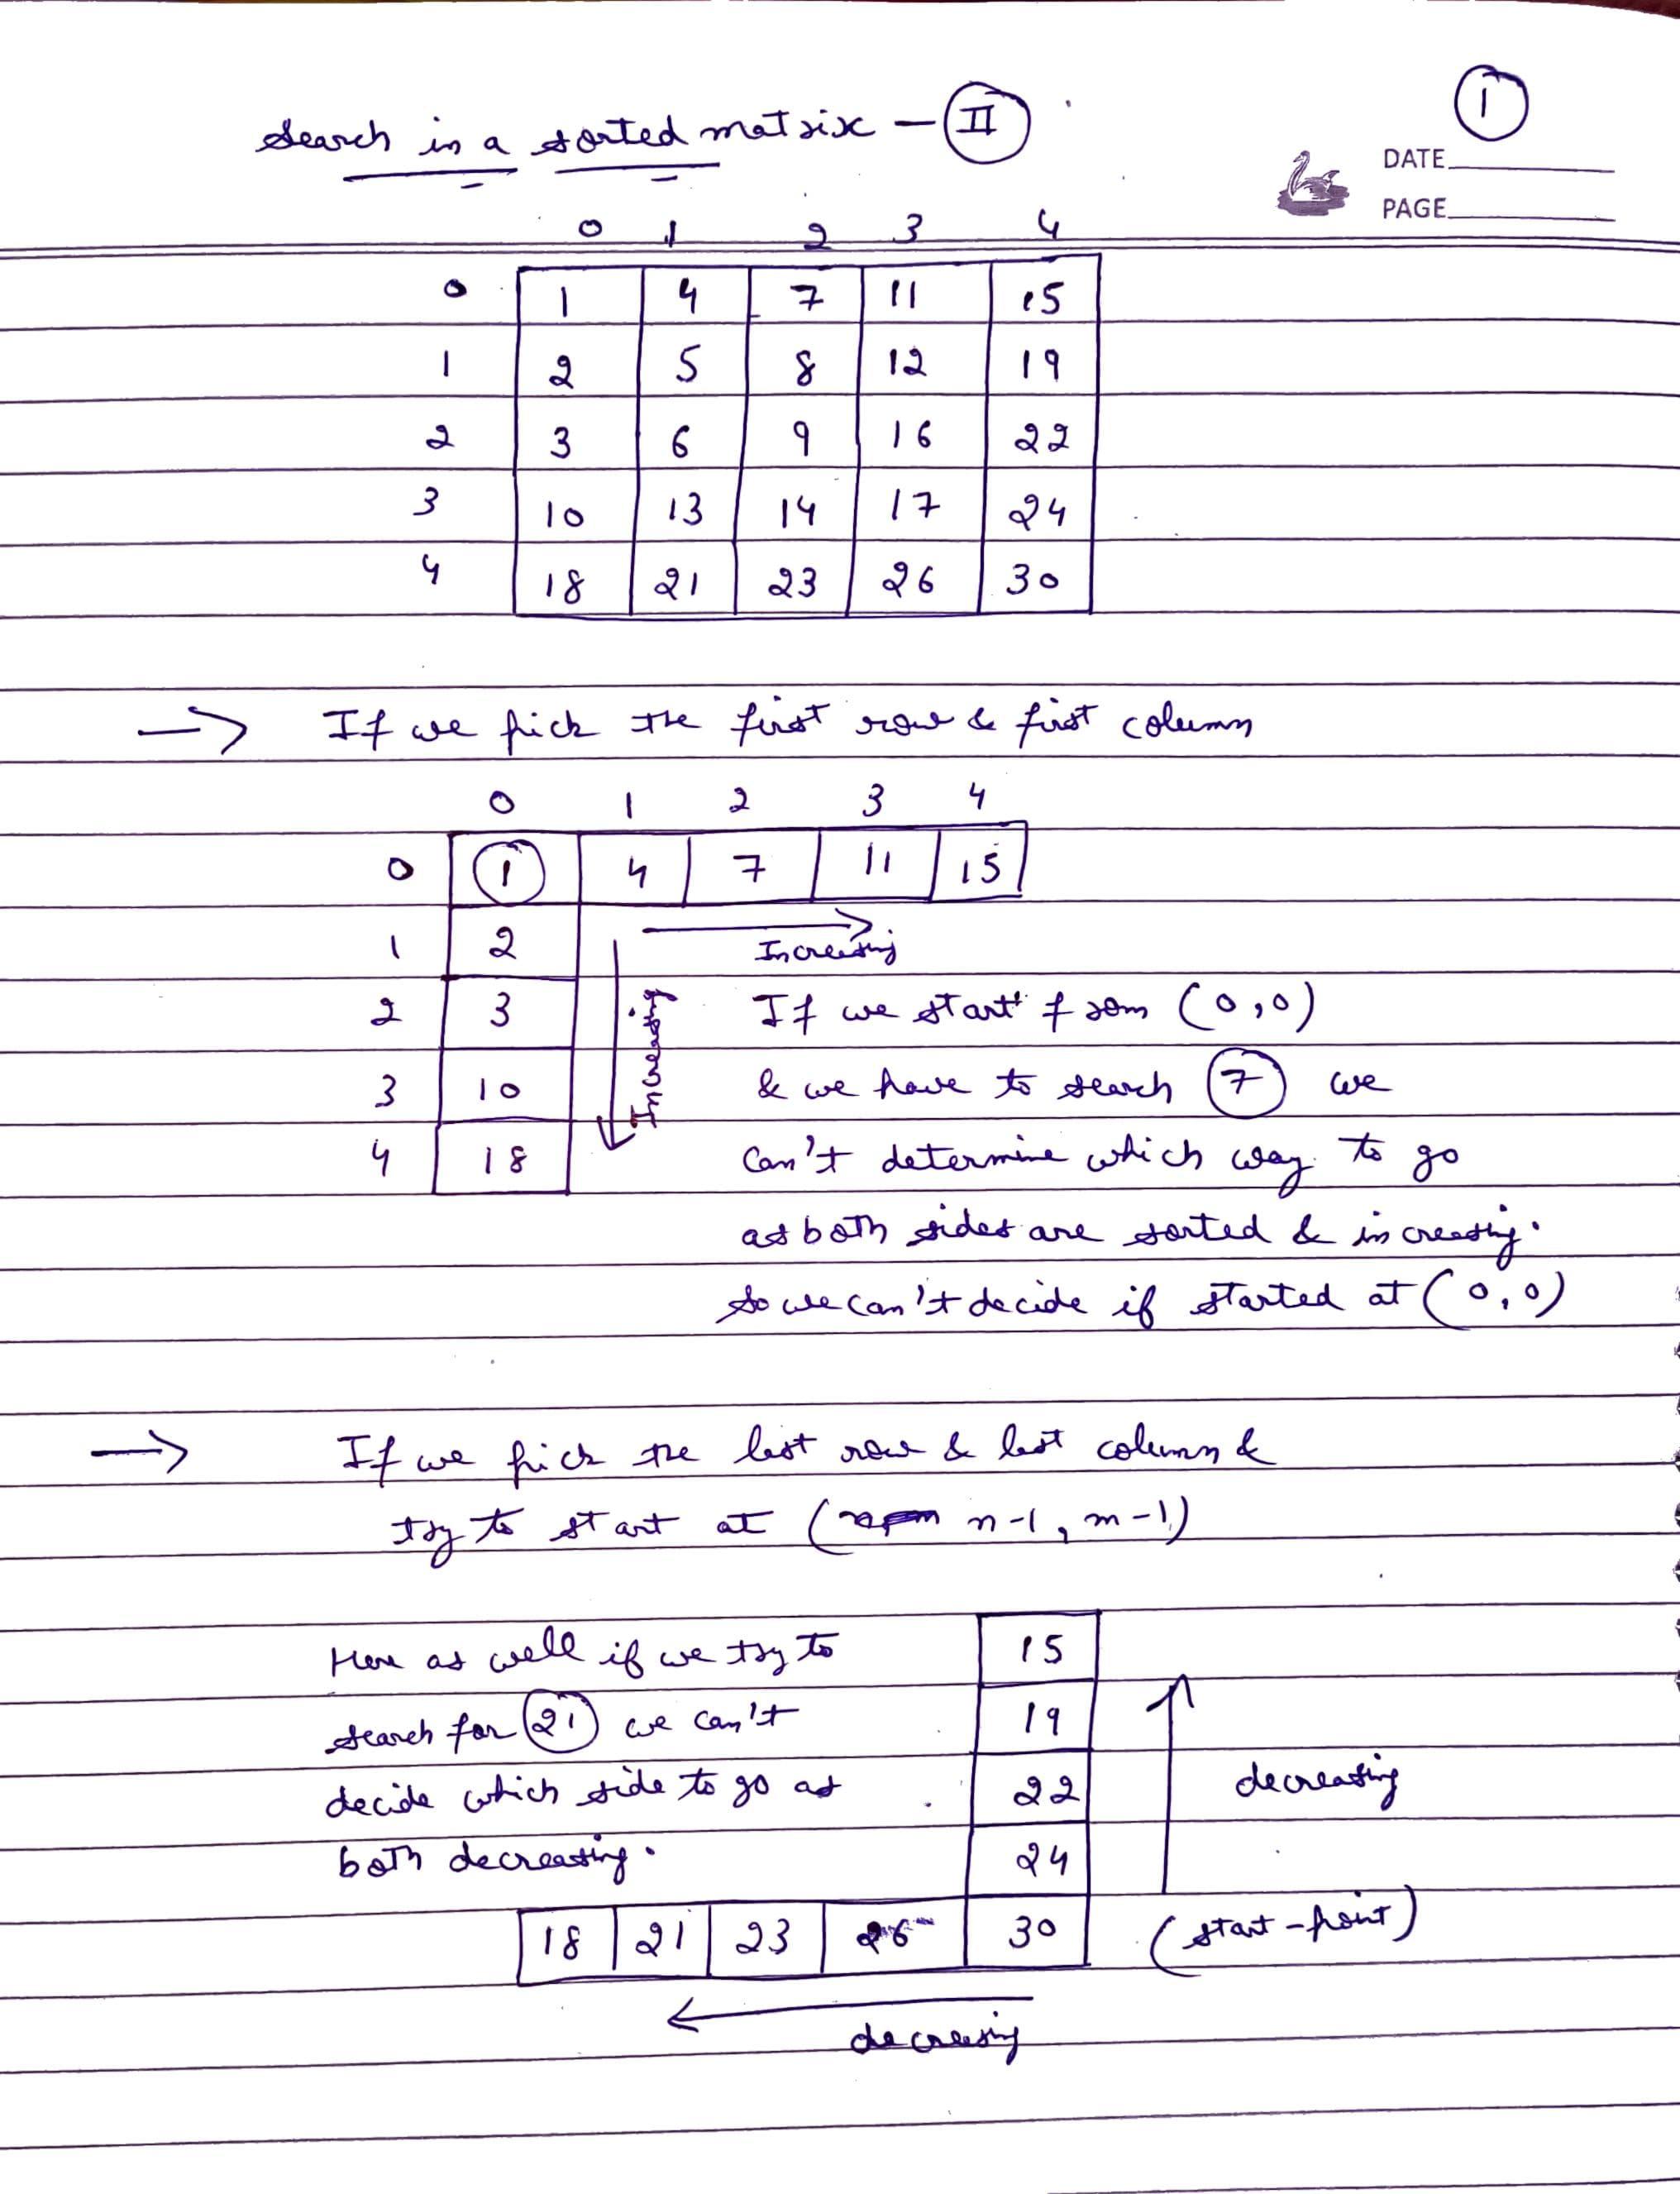 Search in a sorted matrix - II
1
DATE
PAGE
0 1 2 3 4
0 1 4 7 11 15
1 2 5 8 12 19
2 3 6 9 16 22
3 10 13 14 17 24
4 18 21 23 26 30
→ If we pick the first row & first column
0 1 2 3 4
0 1 4 7 11 15
1 2 Increasing
2 3 Increasing If we start from (0,0)
3 10 & we have to search 7 we
4 18 can't determine which way to go
as both sides are sorted & increasing.
So we can't decide if started at (0,0)
→ If we pick the last row & last column &
try to start at ( n-1, m-1)
Here as well if we try to 15
search for 21 we can't 19
decide which side to go as 22 decreasing
both decreasing. 24
18 21 23 26 30 (start-point)
decreasing